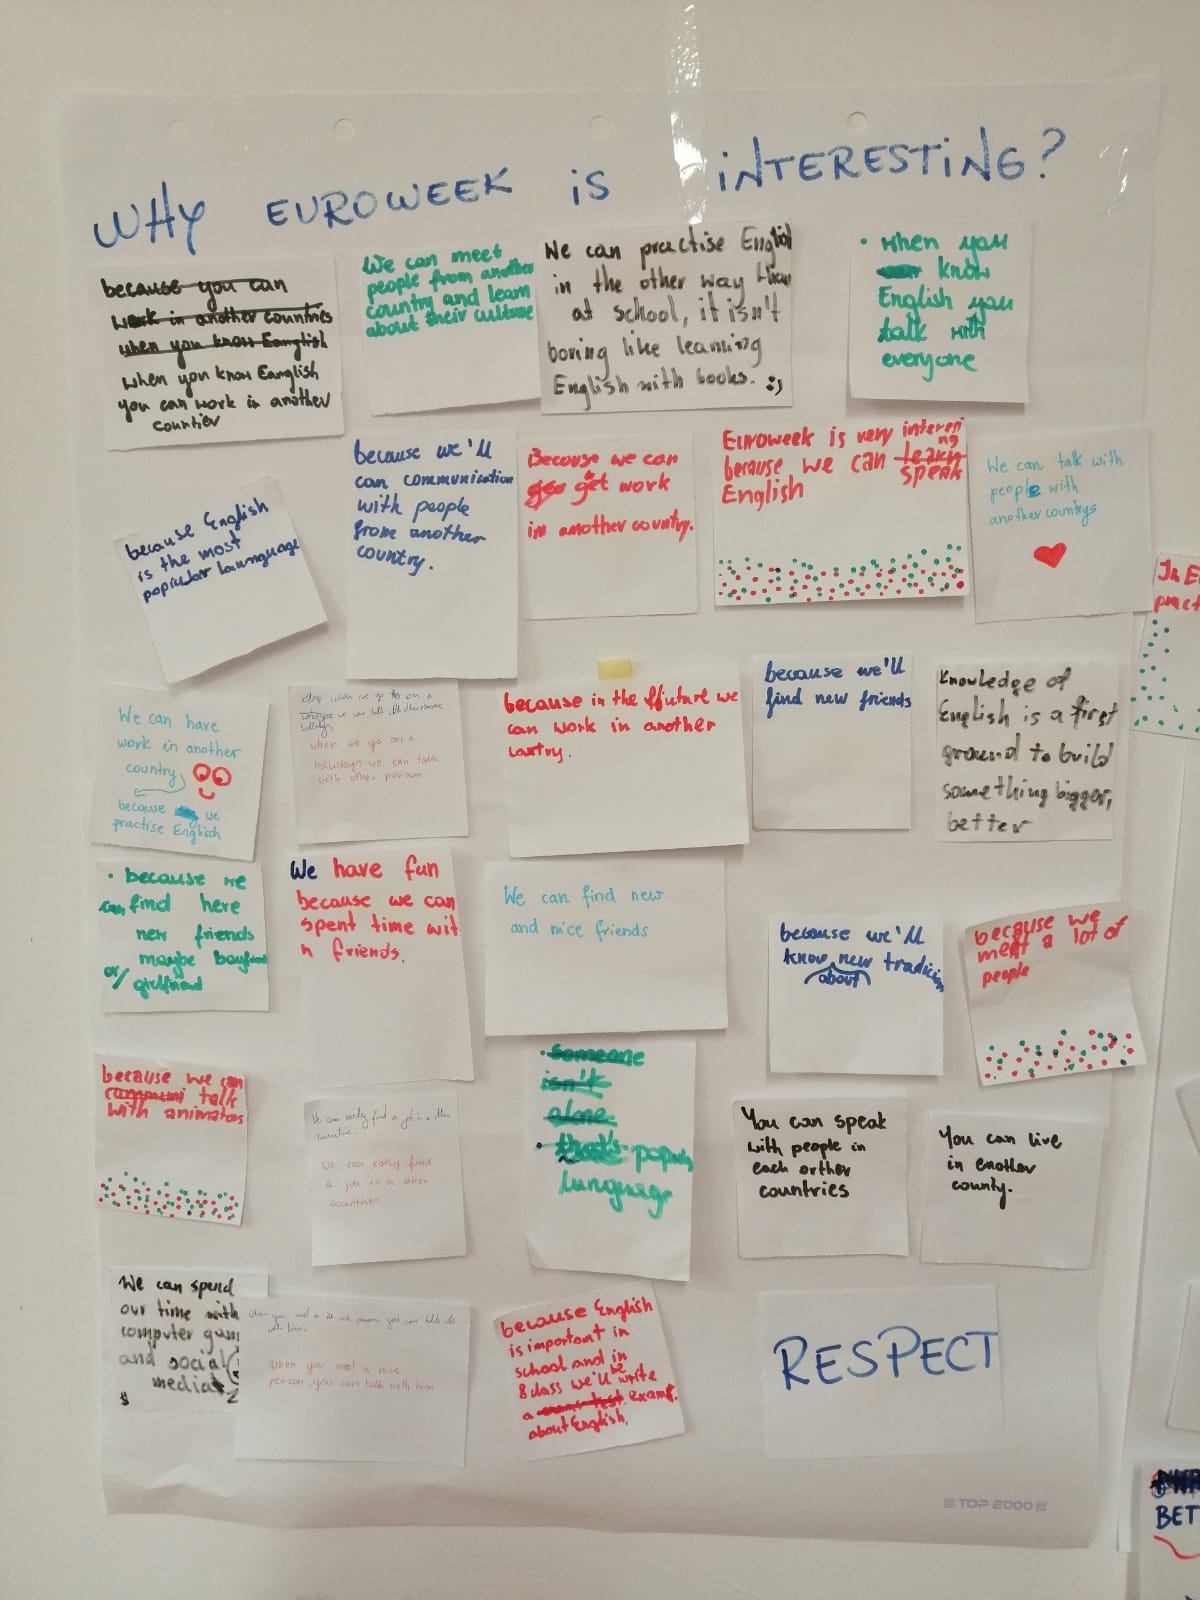 WHY EUROWEEK is iNTERESTiNG?
because you can
work in another countries
when you know Eanglish
when you know Eanglish
you can work in another
countier
We can meet
people from another
country and learn
about their culture
We can practise English
in the other way than
at school, it isn't
boring like learning
English with books. :)
• when you
know
English you
talk with
everyone
because English
is the most
popicular launguage
because we'll
can communication
with people
from another
country.
Becouse we can
get work
in another country.
Euroweek is very interesi
ng
becouse we can learn
speak
English
We can talk with
people with
another countrys
In E
pract
We can have
work in another
country
because we
practise Englisch
when we go on a
we can talk
when we go on a
hollidays we can talk
with other person
because in the ffuture we
can work in another
because we'll
find new friends
Knowledge of
English is a first
ground to build
something bigger,
better
• because we
can find here
new friends
maybe boyfriend
or/ girlfriend
We have fun
because we can
spent time wit
h friends.
We can find new
and nice friends
because we'll
know new tradicion
about
because we
meet a lot of
people
because we can
communi talk
with animators
We can easly find a job in a other
countries.
We can easly find
a job in a other
countries
• Someone
isn't
alone
• that's populy
language
You can speak
with people in
each orther
countries
You can live
in enother
county.
We can spend
our time with
computer gam
and social
media
When you meet a nice person you can talk
with him.
When you meet a nice
person, you can talk with him
because English
is important in
school and in
8 class we'll be write
a exam.
about English.
RESPECT
TOP 2000
BET